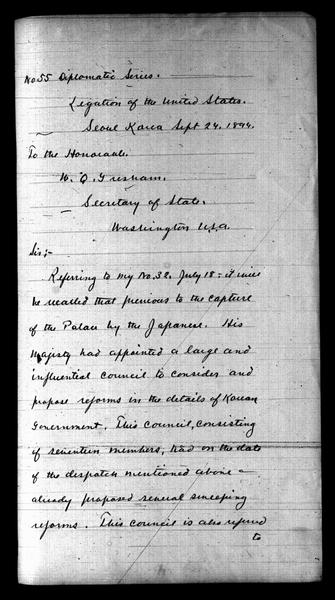 No 55 Diplomatic Series.
Legation of the United States.
Seoul Korea Sept 24, 1894.
To the Honorable.
W. Q. Gresham.
Secretary of State.
Washington U.S.A.
Sir;-
Referring to my No. 32. July 18 - it will
be recalled that previous to the capture
of the Palace by the Japanese. His
Majesty had appointed a large and
influential council to consider and
propose reforms in the details of Korean
Government. This council, consisting
of seventeen members, had on the date
of the despatch mentioned above -
already proposed several sweeping
reforms. This council is also referred
to